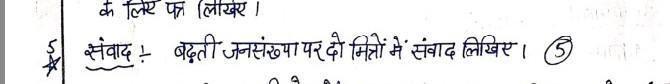 के लिए पत्र लिखिए।
5 संवाद :- बढ़ती जनसंख्या पर दो मित्रों में संवाद लिखिए। 5